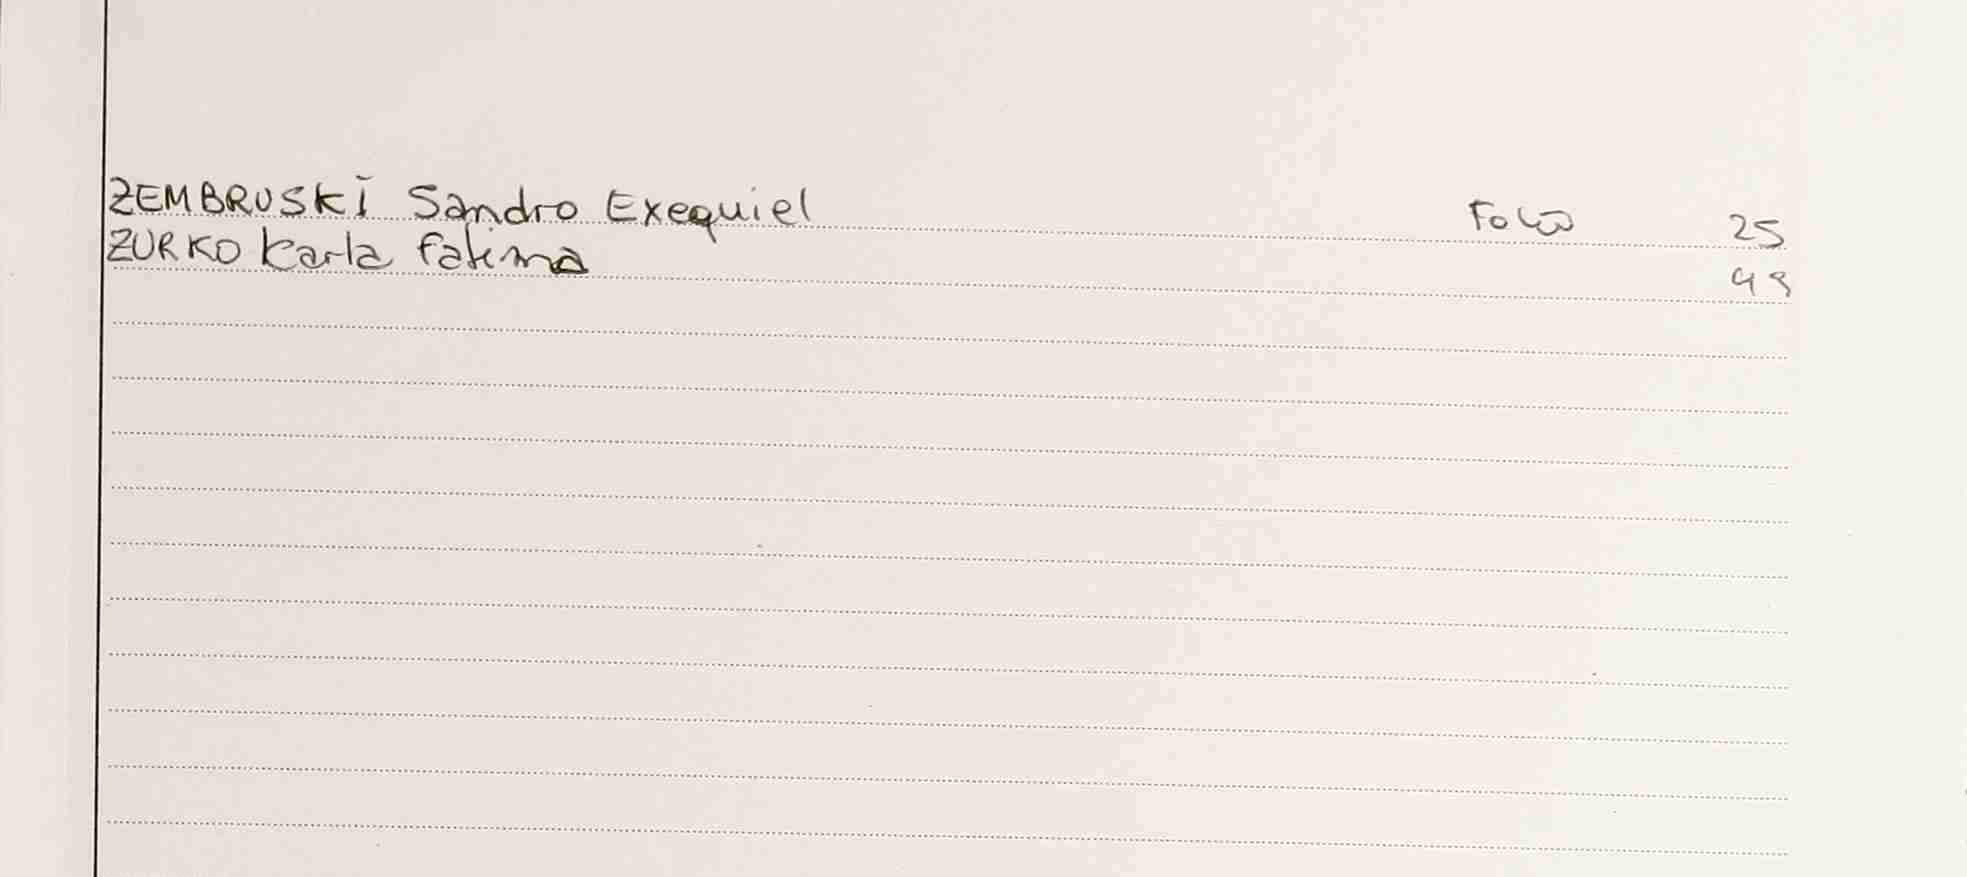 ZEMBRUSKI Sandro Exequiel Folio 25
ZURKO Karla Fatima 48